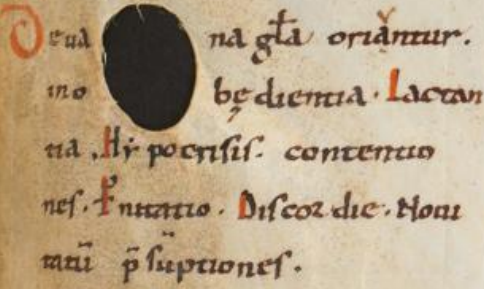 De ua na gl̄a oriantur.
ino będientia. Lactan
tia. Hẏpocrisis. contentio
nes. Discordie. Noui
tatū p̄sūptiones.